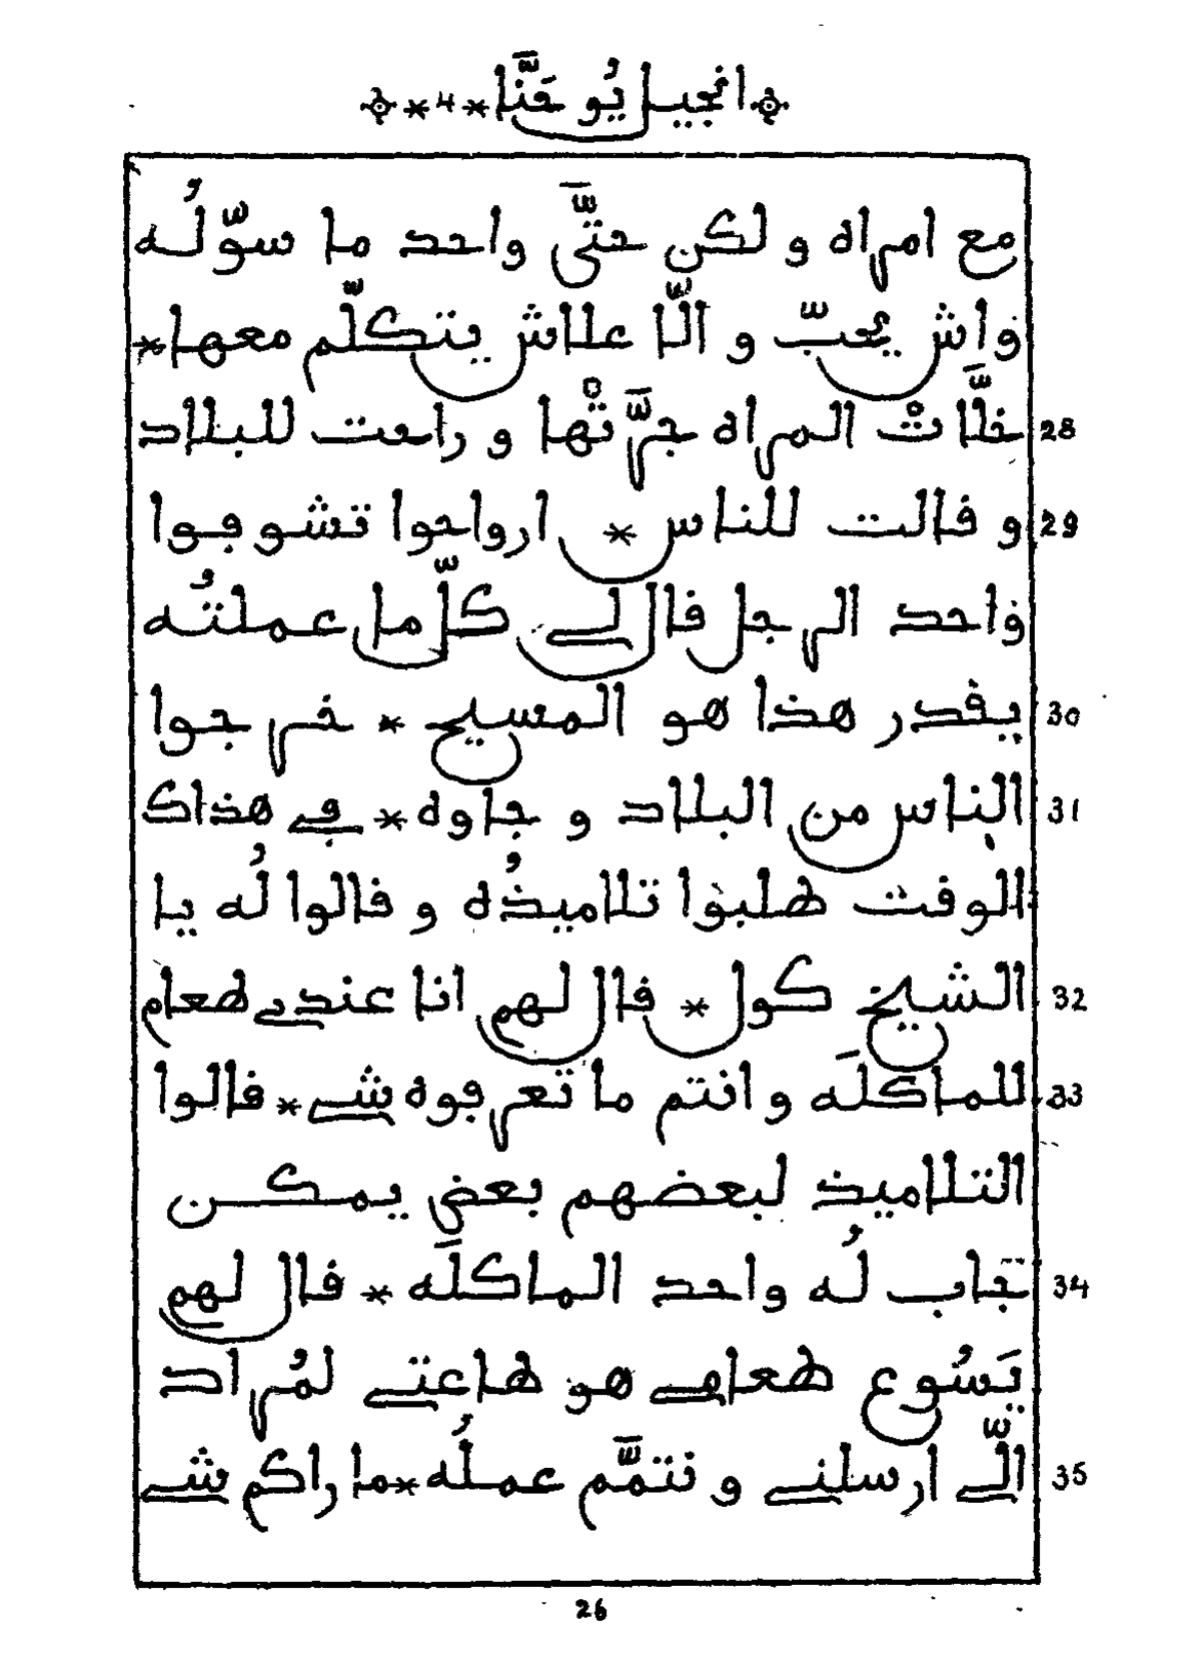 انجيل يُوحَنَّا * 4 *
مع امراه و لكن حتَّى واحد ما سوّلُه
واش يحبّ و الّا علاش يتكلّم معها *
28 خلَّاتْ المراه جرَّتْها و راحت للبلاد
29 و قالت للناس * ارواحوا تشوفوا
واحد الرجل قال لي كلّ ما عملتُه
30 يقدر هذا هو المسيح * خرجوا
31 الناس من البلاد و جاوه * في هذاك
الوقت طلبوا تلاميذُه و قالوا لُه يا
32 الشيخ كول * قال لهم انا عندي طعام
33 للماكلَه و انتم ما تعرفوه شي * قالوا
التلاميذ لبعضهم بعض يمكن
34 جاب لُه واحد الماكلَه * قال لهم
يَسُوع طعامي هو طاعتي لمُراد
35 الّي ارسلني و نتمَّم عملُه * ما راكم شي
26